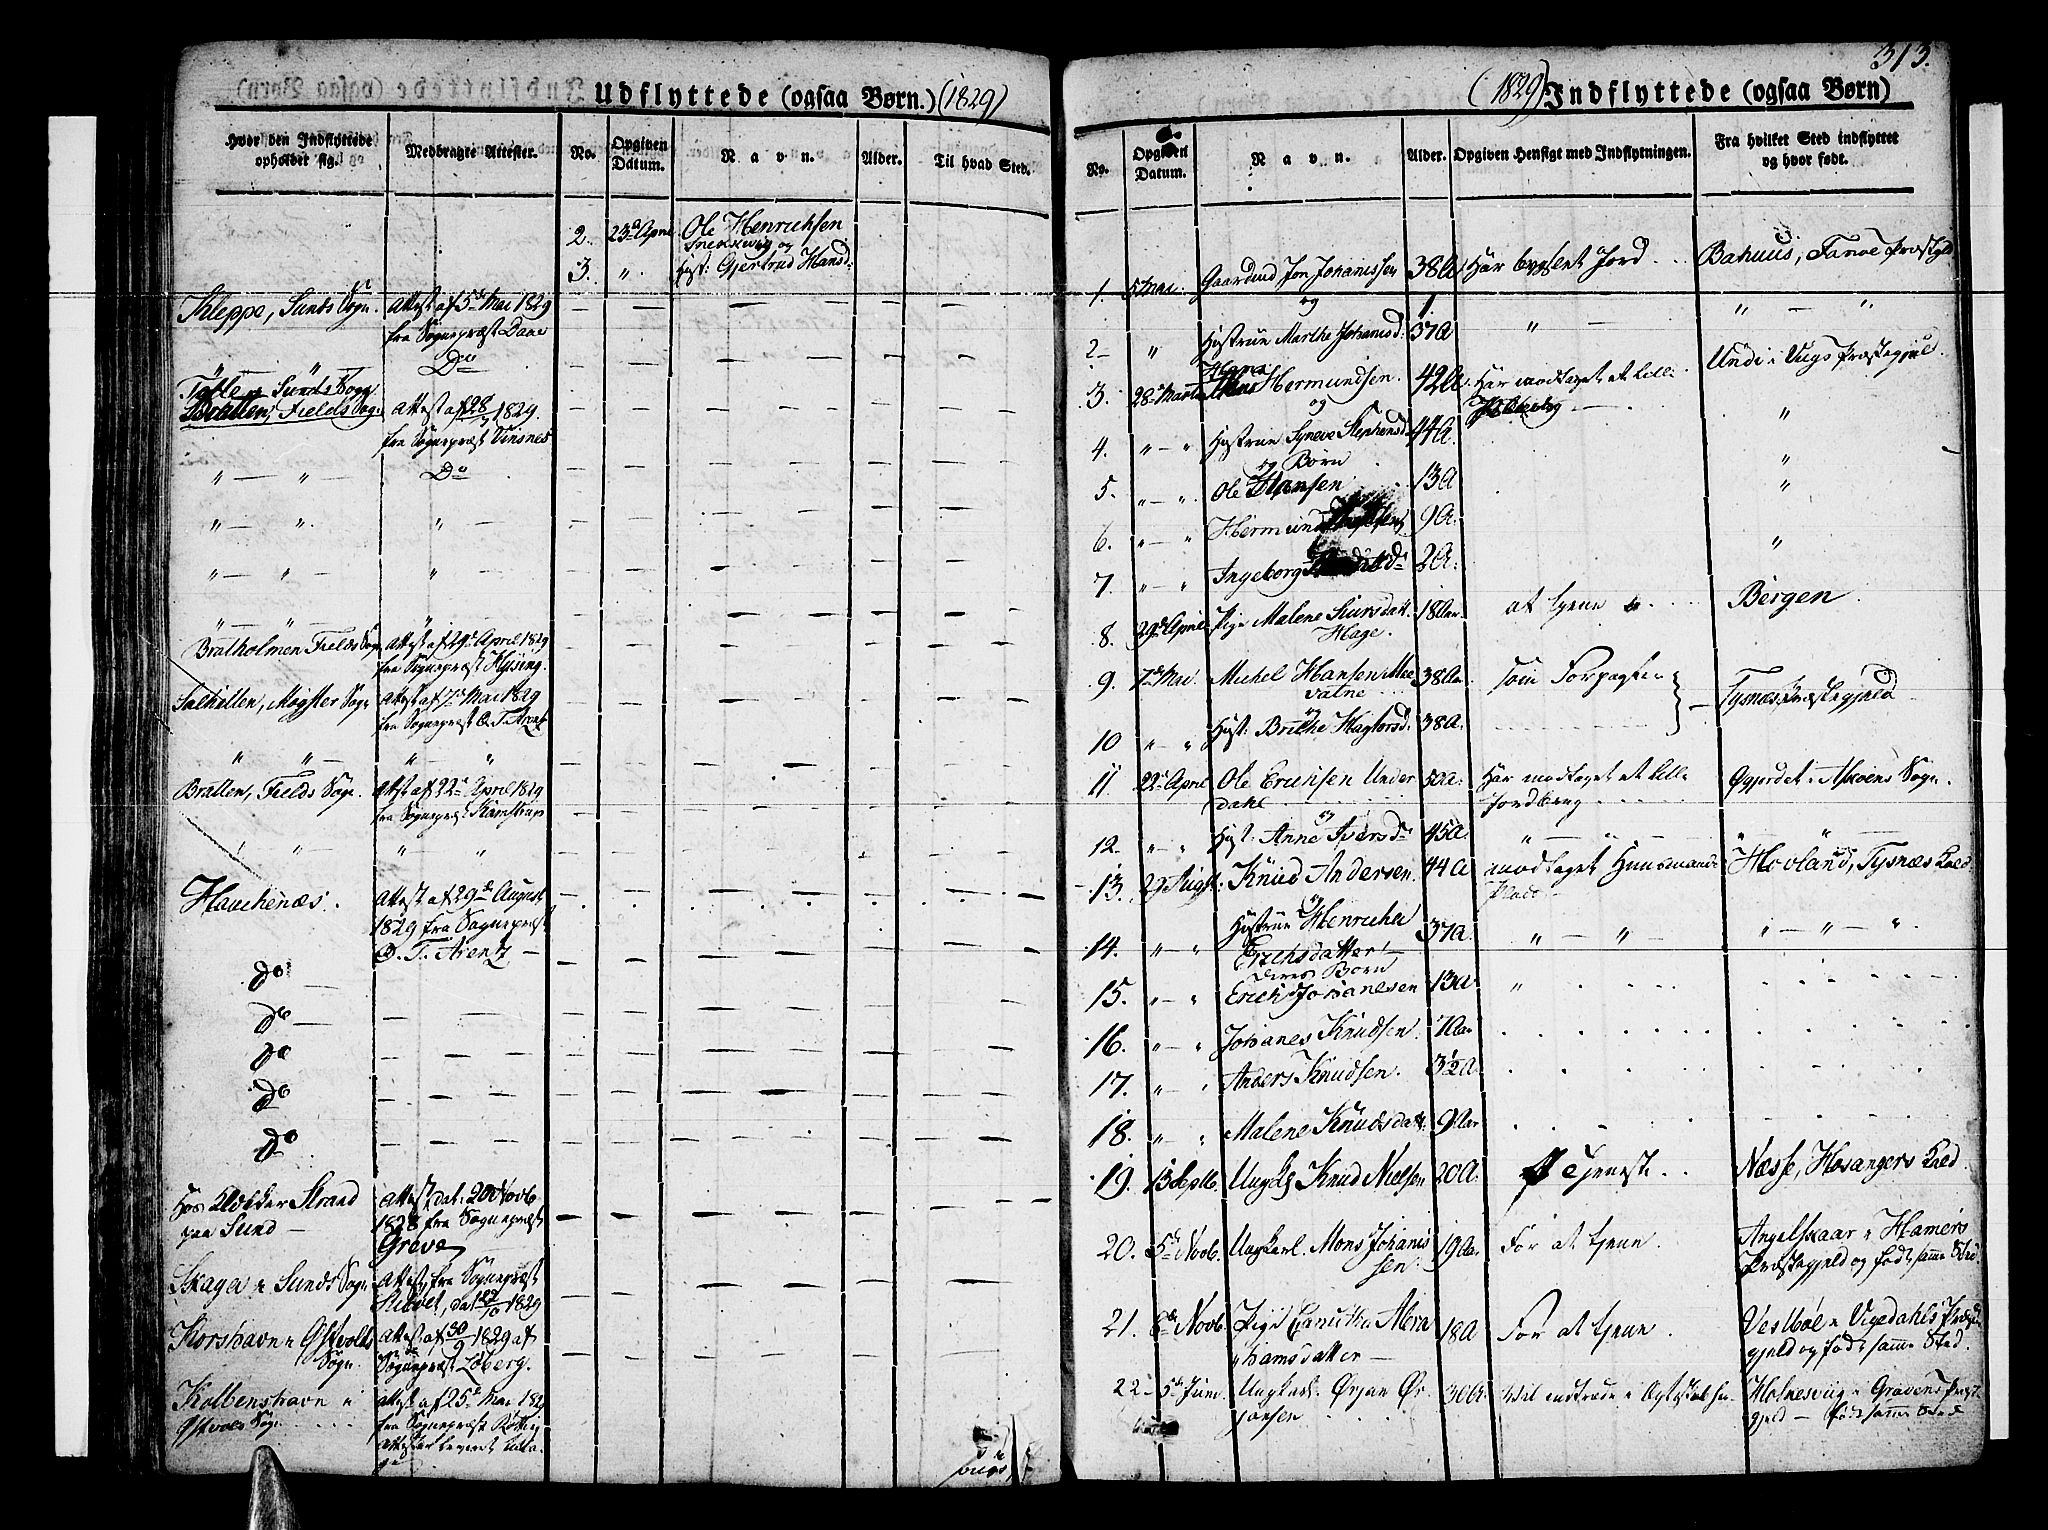 Udflyttede (ogsaa Børn.) (1829)
Hvor den Indflyttede
opholder sig.
Medbragte Attester.
No.
Opgiven
Datum.
Navn.
Alder.
Til hvad Sted.
2. 23de April Ole Henrichsen
Snekkevig og
3. " Hust: Gjertrud Hansd.
Kleppe, Sunds Sogn. Attest af 5te Mai 1829
fra Sognepræst Dane
" " Do
Tofte, Sunds Sogn
Bratten, Fields Sogn Attest af 28/3 1829.
fra Sognepræst Vinsnes
" — " Do
" — " "
" — " "
" — " "
Bratholmen Fields Sogn Attest af 29de April 1829
fra Sognepræst Hysing.
Møgster Sogn Attest af 7de Mai 1829
fra Sognepræst O. T. Arentz
" " " "
Bratten, Fields Sogn. Attest af 22de April 1829
fra Sognepræst Kamstrup
" " "
Haückenæs. Attest af 29de August
1829 fra Sognepræst
O. T. Arentz
do
do
do
do
do
Hos Klokker Strand
paa Sund
Attest dat. 20 Novb
1828 fra Sognepræst
Greve
Skaga i Sunds Sogn Attest fra Sognepræst
dat 27/10 1829
Korshavn i Østvolds
Sogn.
Attest af 30/9 1829 af
Sognepræst Løberg.
Kolbenshavn i
Østvolds Sogn
Attest af 25de Mai 1829
fra Sognepræst
313.
(1829) Indflyttede (ogsaa Børn)
No.
Opgiven
Datum.
Navn.
Alder.
Opgiven Hensigt med Indflytningen.
Fra hvilket Sted indflyttet
og hvor født.
1. 5te Mai. Gaardmd Jon Johanissen 38A Har bygslet Jord Bahuus, Fanøe Præstgjd
og
2 " Hustrue Marthe Johanisd. 37A " " "
3. 28de Marts Hans Hermundsen. 42A. Har modtaget et lille Undi i Vügs Præstegjeld.
og
4. " " Hustrue Syneve Stephensd 44A. "
og Børn
5. " — " Ole Hansen 13A "
6. " — " Hermund 9A. "
7. " — " Ingeborg 2A. "
8. 29de April Pige Malene Siursdatt. 18Aar at tjene Bergen.
Hage.
9. 7de Mai. Michel Hansen 38Aar som Forpagter Tysnæs Præstegjeld
og
10 " " Hust: Brithe 38A.
11. 22de April Ole Erichsen Under 50A. Har modtaget et lille i Askøens Sogn.
dahl Jordbrug
og
12 " — " Hust. Anne Iversdr 45A. " — " " "
13. 29 Augst: Knud Andersen 44A modtaget Huusmands Hovland, Tysnæs Præstegjeld
Plads
og
14. " " Hustrue Henricha 37A. " — " " — " — "
Erichsdatter
Deres Børn
15. " " Erich Johanesen 13A. "
16. " — " Johanes Knudsen. 7Aar
17. " " Anders Knudsen. 3½A.
18. " " Malene Knudsdatt. 9Aar
19. 13 Septb. Ungk. Knud Nielsen 20A Tjeneste Næsse, Hosangers
20. 5te Novb. Ungkarl. Mons Johanis 19Aar For at tjene. Angelskaar i Hamers
sen. Præstegjeld og født samme Sted
21. 6te Novb. Pige 18A For at tjene. Vestbøe i Vigedahls Præste
hamsdatter gjeld og født samme Sted.
22. 5te Juni Ungkarl. Ørjan Ør 30A. Vil indtræde i Ægteskab Holnesviig i Gravens Præst
jansen gjeld — født samme Sted